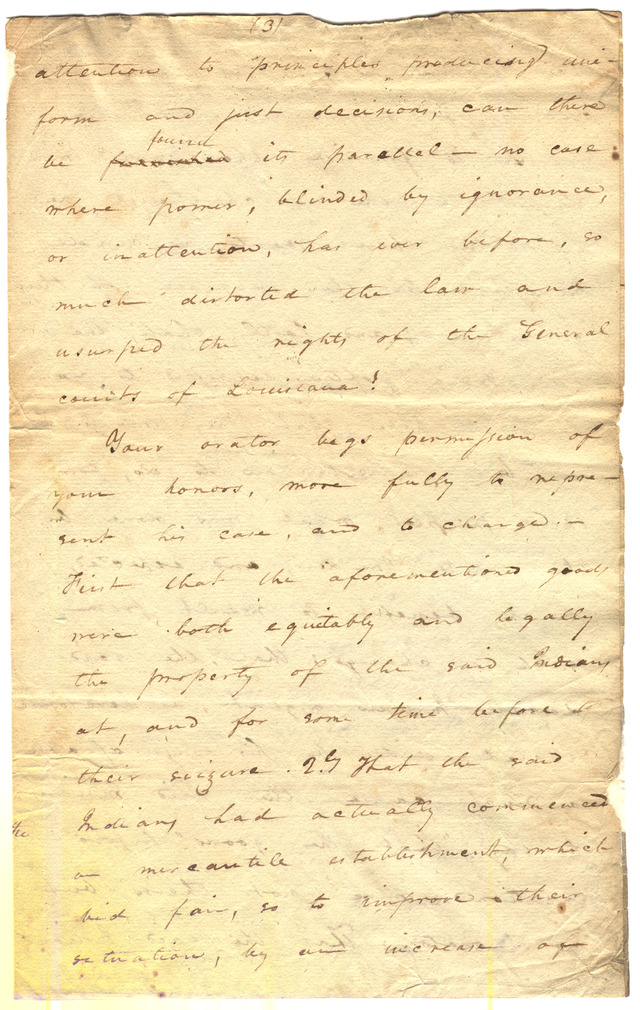 (3)
attention to principles producing uni-
form and just decisions, can there
found
be furnished its parellel — no case
where power, blinded by ignorance,
or inattention, has ever before, so
much distorted the law and
usurped the rights of the General
courts of Louisiana!
Your orator begs permission of
your honors, more fully to repre-
sent his case, and to charged. —
First that the aforementioned goods
were both equitably and legally
the property of the said Indians,
at, and for some time before
their seizure. 2.y That the said
Indians had actually commenced
a mercantile establishment, which
bid fair, so to improve their
setuation, by an increase of